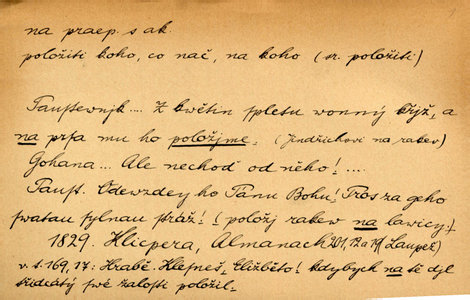 na praep. s ak.
položiti koho, co nač, na koho (sr. položiti)
Paustewnjk.... Z kwětin spletu wonný křjž, a
na prsa mu ho položjme. (Jindřichovi na rakev)
Johana... Ale nechoď od něho! ....
Paust. Odewzdey ho Pánu Bohu! Pros za geho
swatau sylnau stráž! (položj rakew na lawicy.)
1829. Klicpera, Almanach 201, 12 a 19
v. t. 169, 17: Hrabě. Klepneš, Elizběto! kdybych na té djl
třidcátý swé žalosti položil.